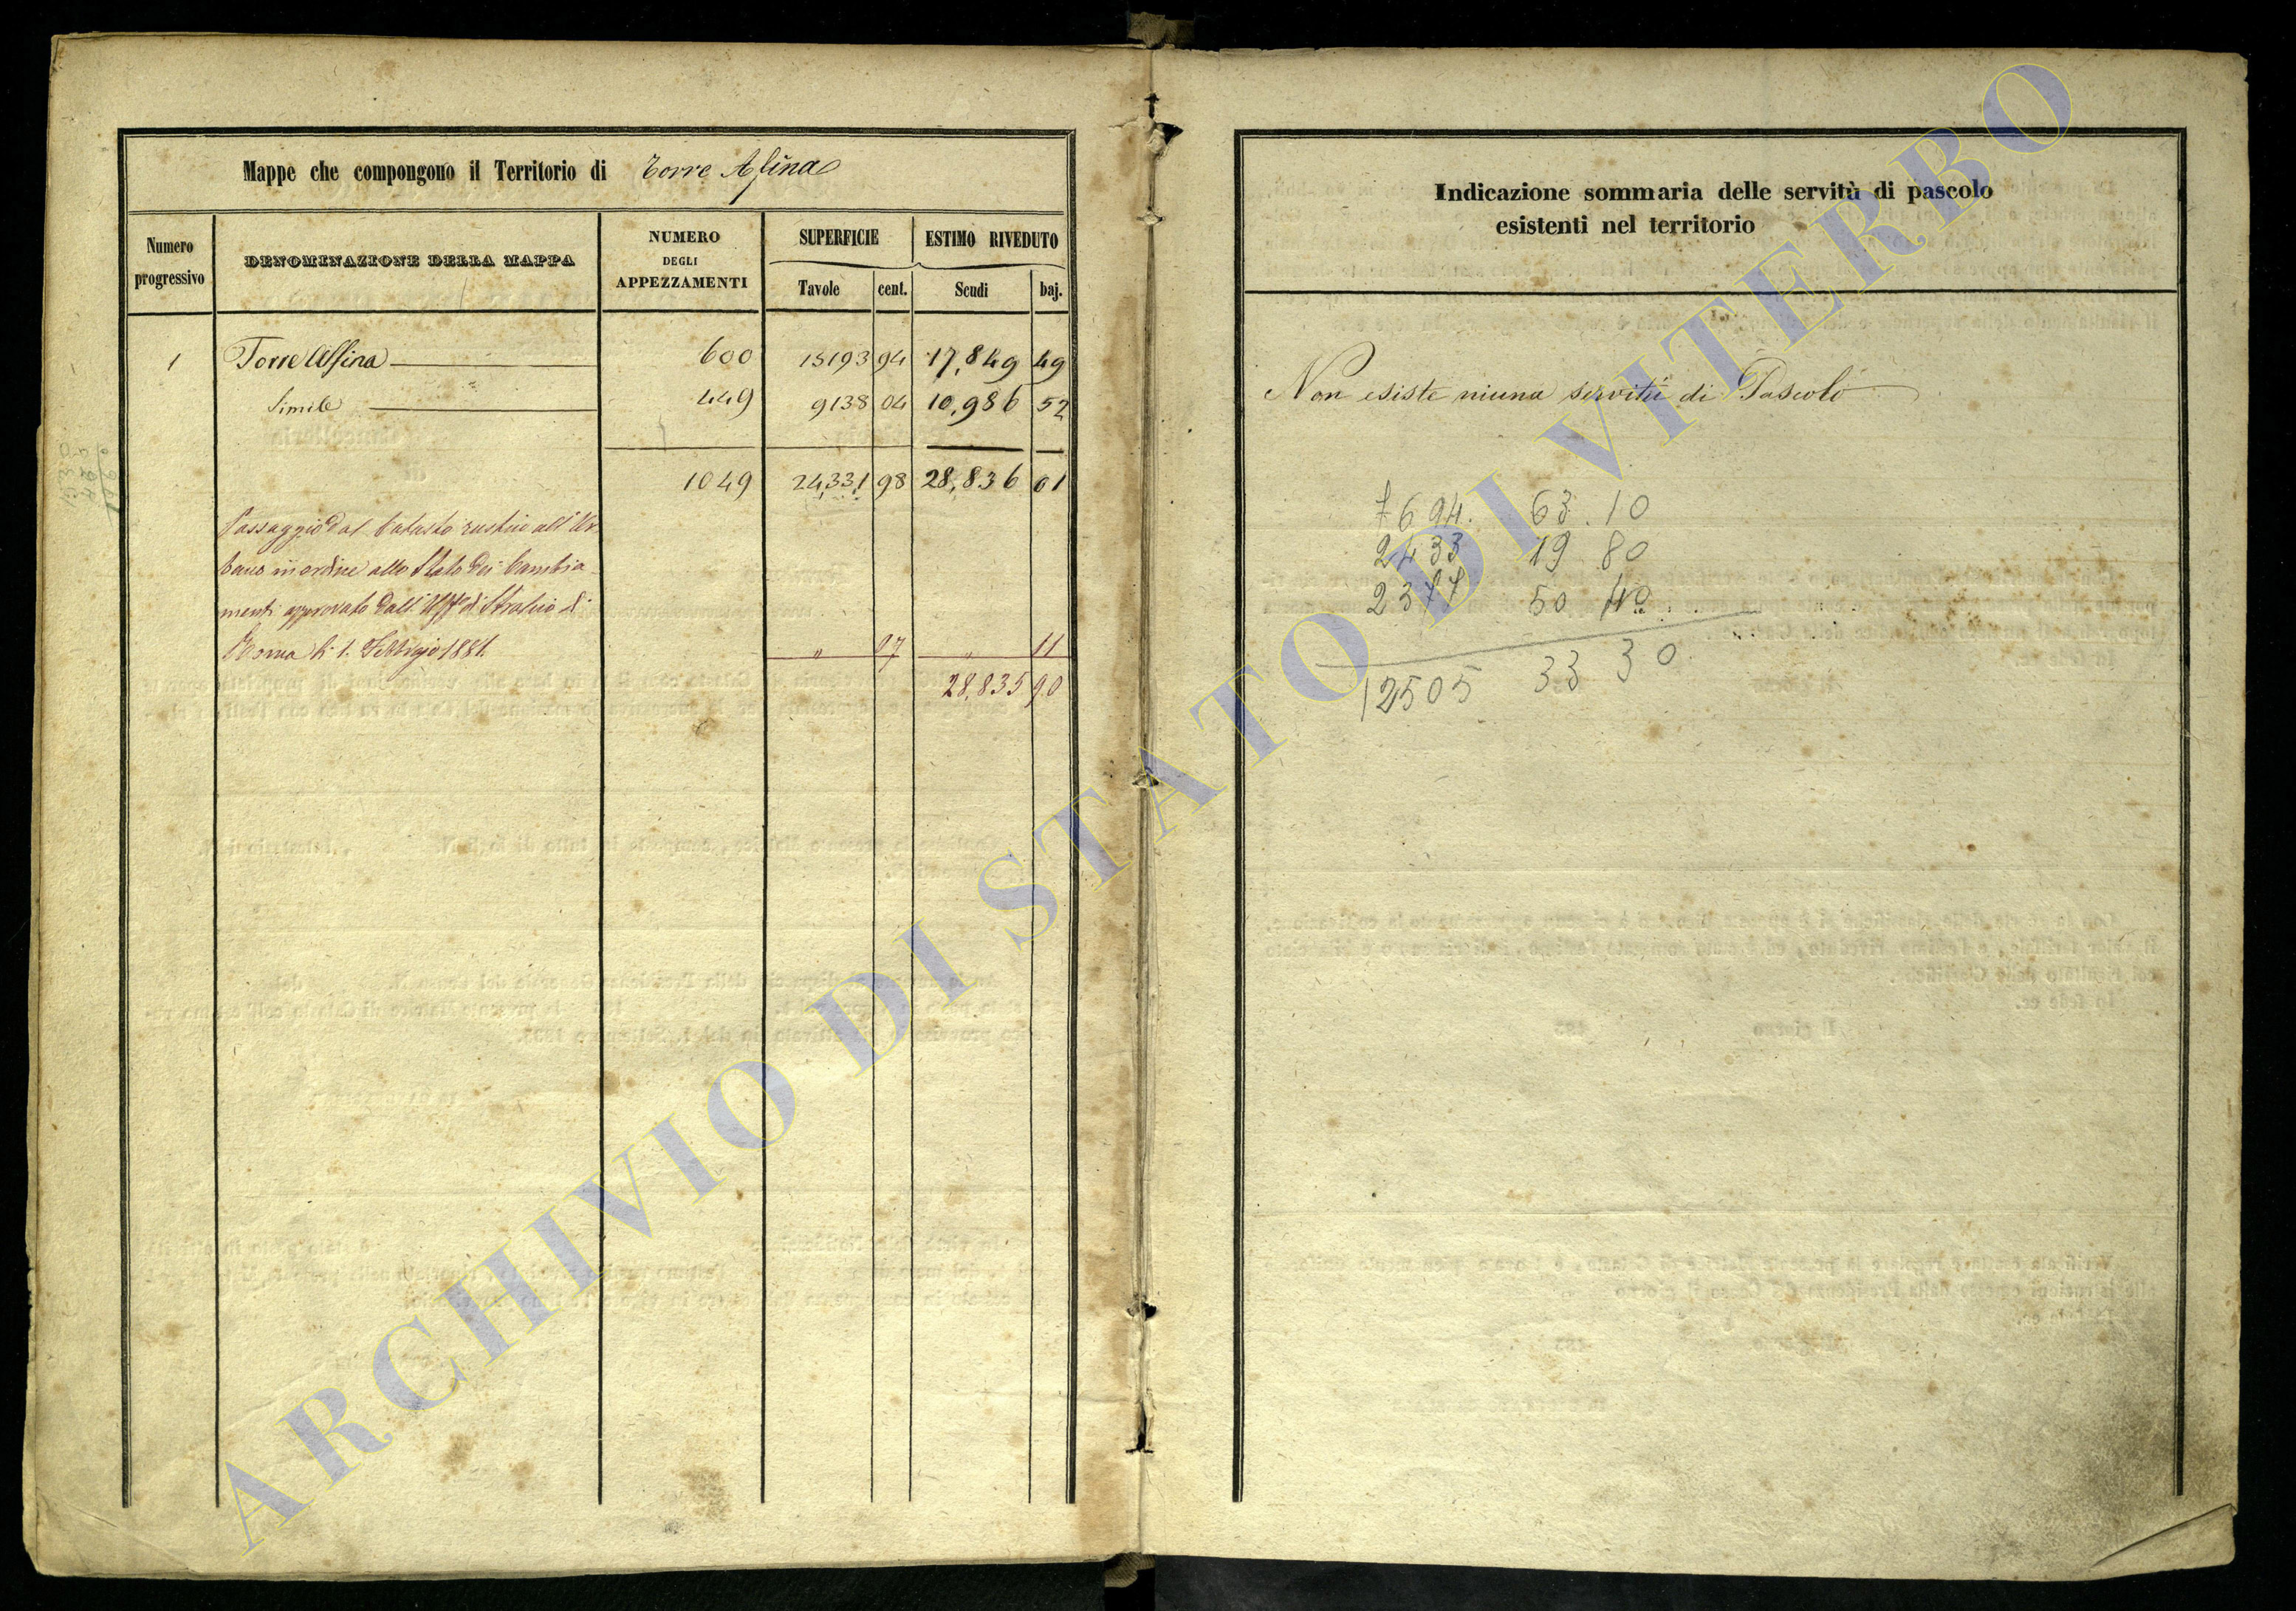 Mappe che compongono il Territorio di Torre Alfina
Numero progressivo
DENOMINAZIONE DELLA MAPPA
NUMERO DEGLI APPEZZAMENTI
SUPERFICIE
ESTIMO RIVEDUTO
Tavole cent. Scudi baj.
1 Torre Alfina 600 15193 94 17,849 49
Simile 449 9138 04 10,986 52
1049 24,331 98 28,836 01
Passaggio dal Catasto rustico all' Ur
bano in ordine allo Stato dei Cambia
menti approvato dall' Uff° di Stralcio di
Roma li 1. Febbrajo 1881. " 07 " 11
28,835 90
Indicazione sommaria delle servitù di pascolo
esistenti nel territorio
Non esiste niuna servitù di Pascolo
7694. 63.10
2433 19 80
2377 50 40
12505 33 30
ARCHIVIO DI STATO DI VITERBO